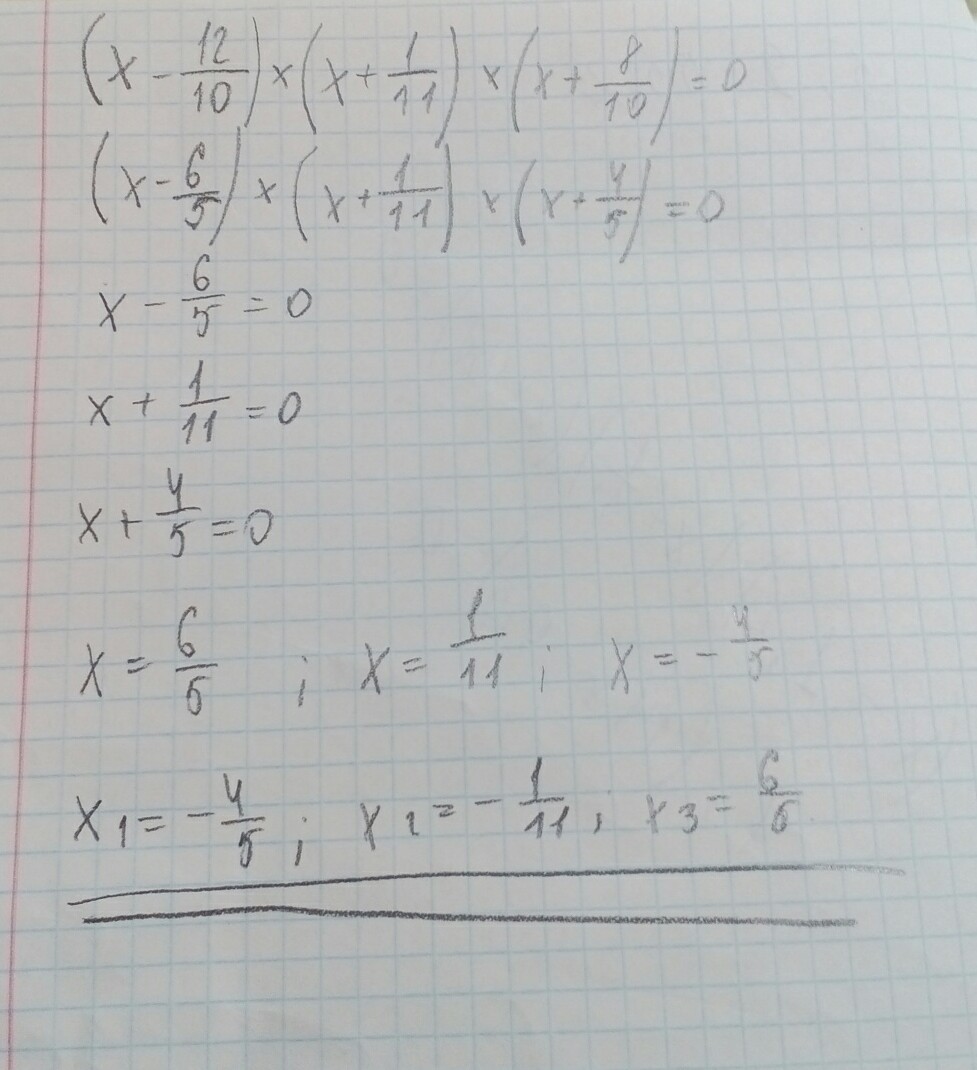 (x - 12/10) × (x + 1/11) × (x + 8/10) = 0
(x - 6/5) × (x + 1/11) × (x + 4/5) = 0
x - 6/5 = 0
x + 1/11 = 0
x + 4/5 = 0
x = 6/5 ; x = 1/11 ; x = - 4/5
x1 = - 4/5 ; x2 = - 1/11 ; x3 = 6/5